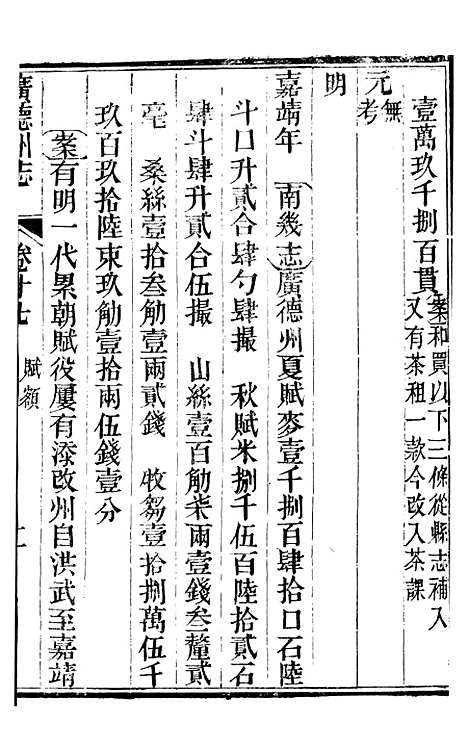 壹萬玖千捌百貫案和買以下三條從縣志補入
又有茶租一款今改入茶課
元無考
明
嘉靖年 南幾志廣德州夏賦麥壹千捌百肆拾口石陸
斗口升貳合肆勺肆撮 秋賦米捌千伍百陸拾貳石
肆斗肆升貳合伍撮 山絲壹百觔柒兩壹錢叁釐貳
毫 桑絲壹拾叁觔壹兩貳錢 收芻壹拾捌萬伍千
玖百玖拾陸束玖觔壹拾兩伍錢壹分
案有明一代累朝賦役屢有添改州自洪武至嘉靖
廣德州志 卷十七 賦額